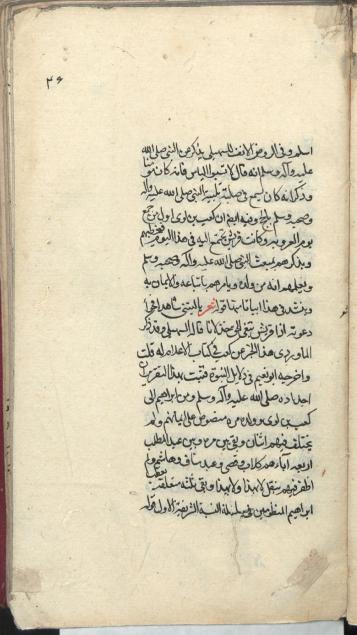 ٣٦
اسلم وفى الروض الانف للسهيلى يذكر عن النبى صلى الله
عليه وآله وسلم انه قال لا تسبوا الياس فانه كان مؤمنا
وذكر انه كان يسمع فى صلبه تلبية النبى صلى الله عليه وآله
وصحبه وسلم بالحج وفيه ايضا ان كعب بن لوى اول من جمع
يوم العروبة وكانت قريش تجتمع اليه فى هذا اليوم فيخطبهم
ويذكرهم بمبعث النبى صلى الله عليه وآله وصحبه وسلم
ويعلمهم انه من ولده ويامرهم باتباعه والايمان به
وينشد فى هذا ابياتا منها قوله شعر يا ليتنى شاهد فحوا
دعوته اذا قريش تبغى الحق خذلانا قال السهيلى وقد ذكر
الماوردى هذا الخبر عن كعب فى كتاب الاعلام له قلت
واخرجه ابو نعيم فى دلايل النبوة فثبت بهذا التقرير ان
اجداده صلى الله عليه وآله وسلم من ابراهيم الى
كعب بن لوى وولده مرة منصوص على ايمانهم ولم
يختلف فيهم اثنان وبقى بين مرة وبين عبد المطلب
اربعة آباء هم كلاب وقصى وعبد مناف وهاشم ولم
اظفر فيهم بنقل لا بهذا ولا بهذا وبقى ثلثة متعلقة بعقب
ابراهيم المنظومين فى سلسلة النسبة الشريفة الاول قوله